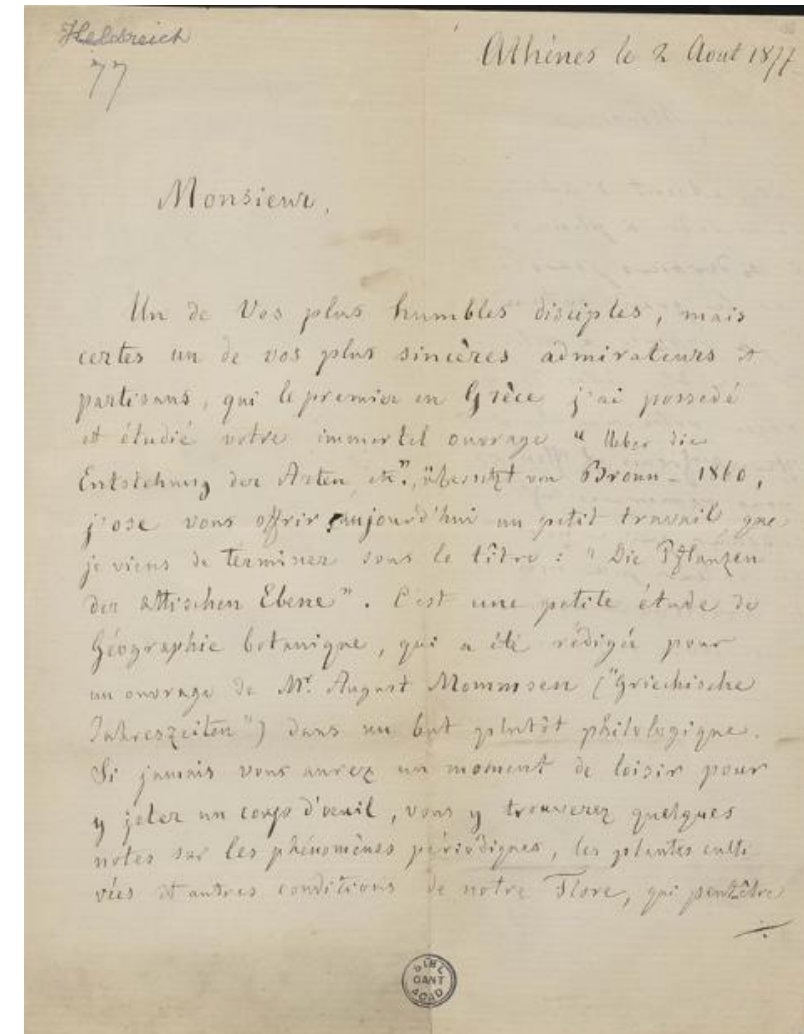 Heldreich
77
Athènes le 2 Aout 1877
Monsieur,
Un de Vos plus humbles disciples, mais
certes un de vos plus sincères admirateurs et
partisans, qui le premier en Grèce j'ai possedé
et étudié votre immortel ouvrage "Ueber die
Entstehung der Arten etc", übersetzt von Bronn - 1860,
j'ose vous offrir aujourd'hui un petit travail que
je viens de terminer sous le titre : "Die Pflanzen
der Attischen Ebene". C'est une petite étude de
Géographie botanique, qui a été rédigée pour
un ouvrage de Mr. August Mommsen ("Griechische
Jahreszeiten") dans un but plutôt philologique.
Si jamais vous aurez un moment de loisir pour
y jeter un coup d'oeuil, vous y trouverez quelques
notes sur les phénomènes périodiques, les plantes culti
vées et autres conditions de notre Flore, qui peutêtre